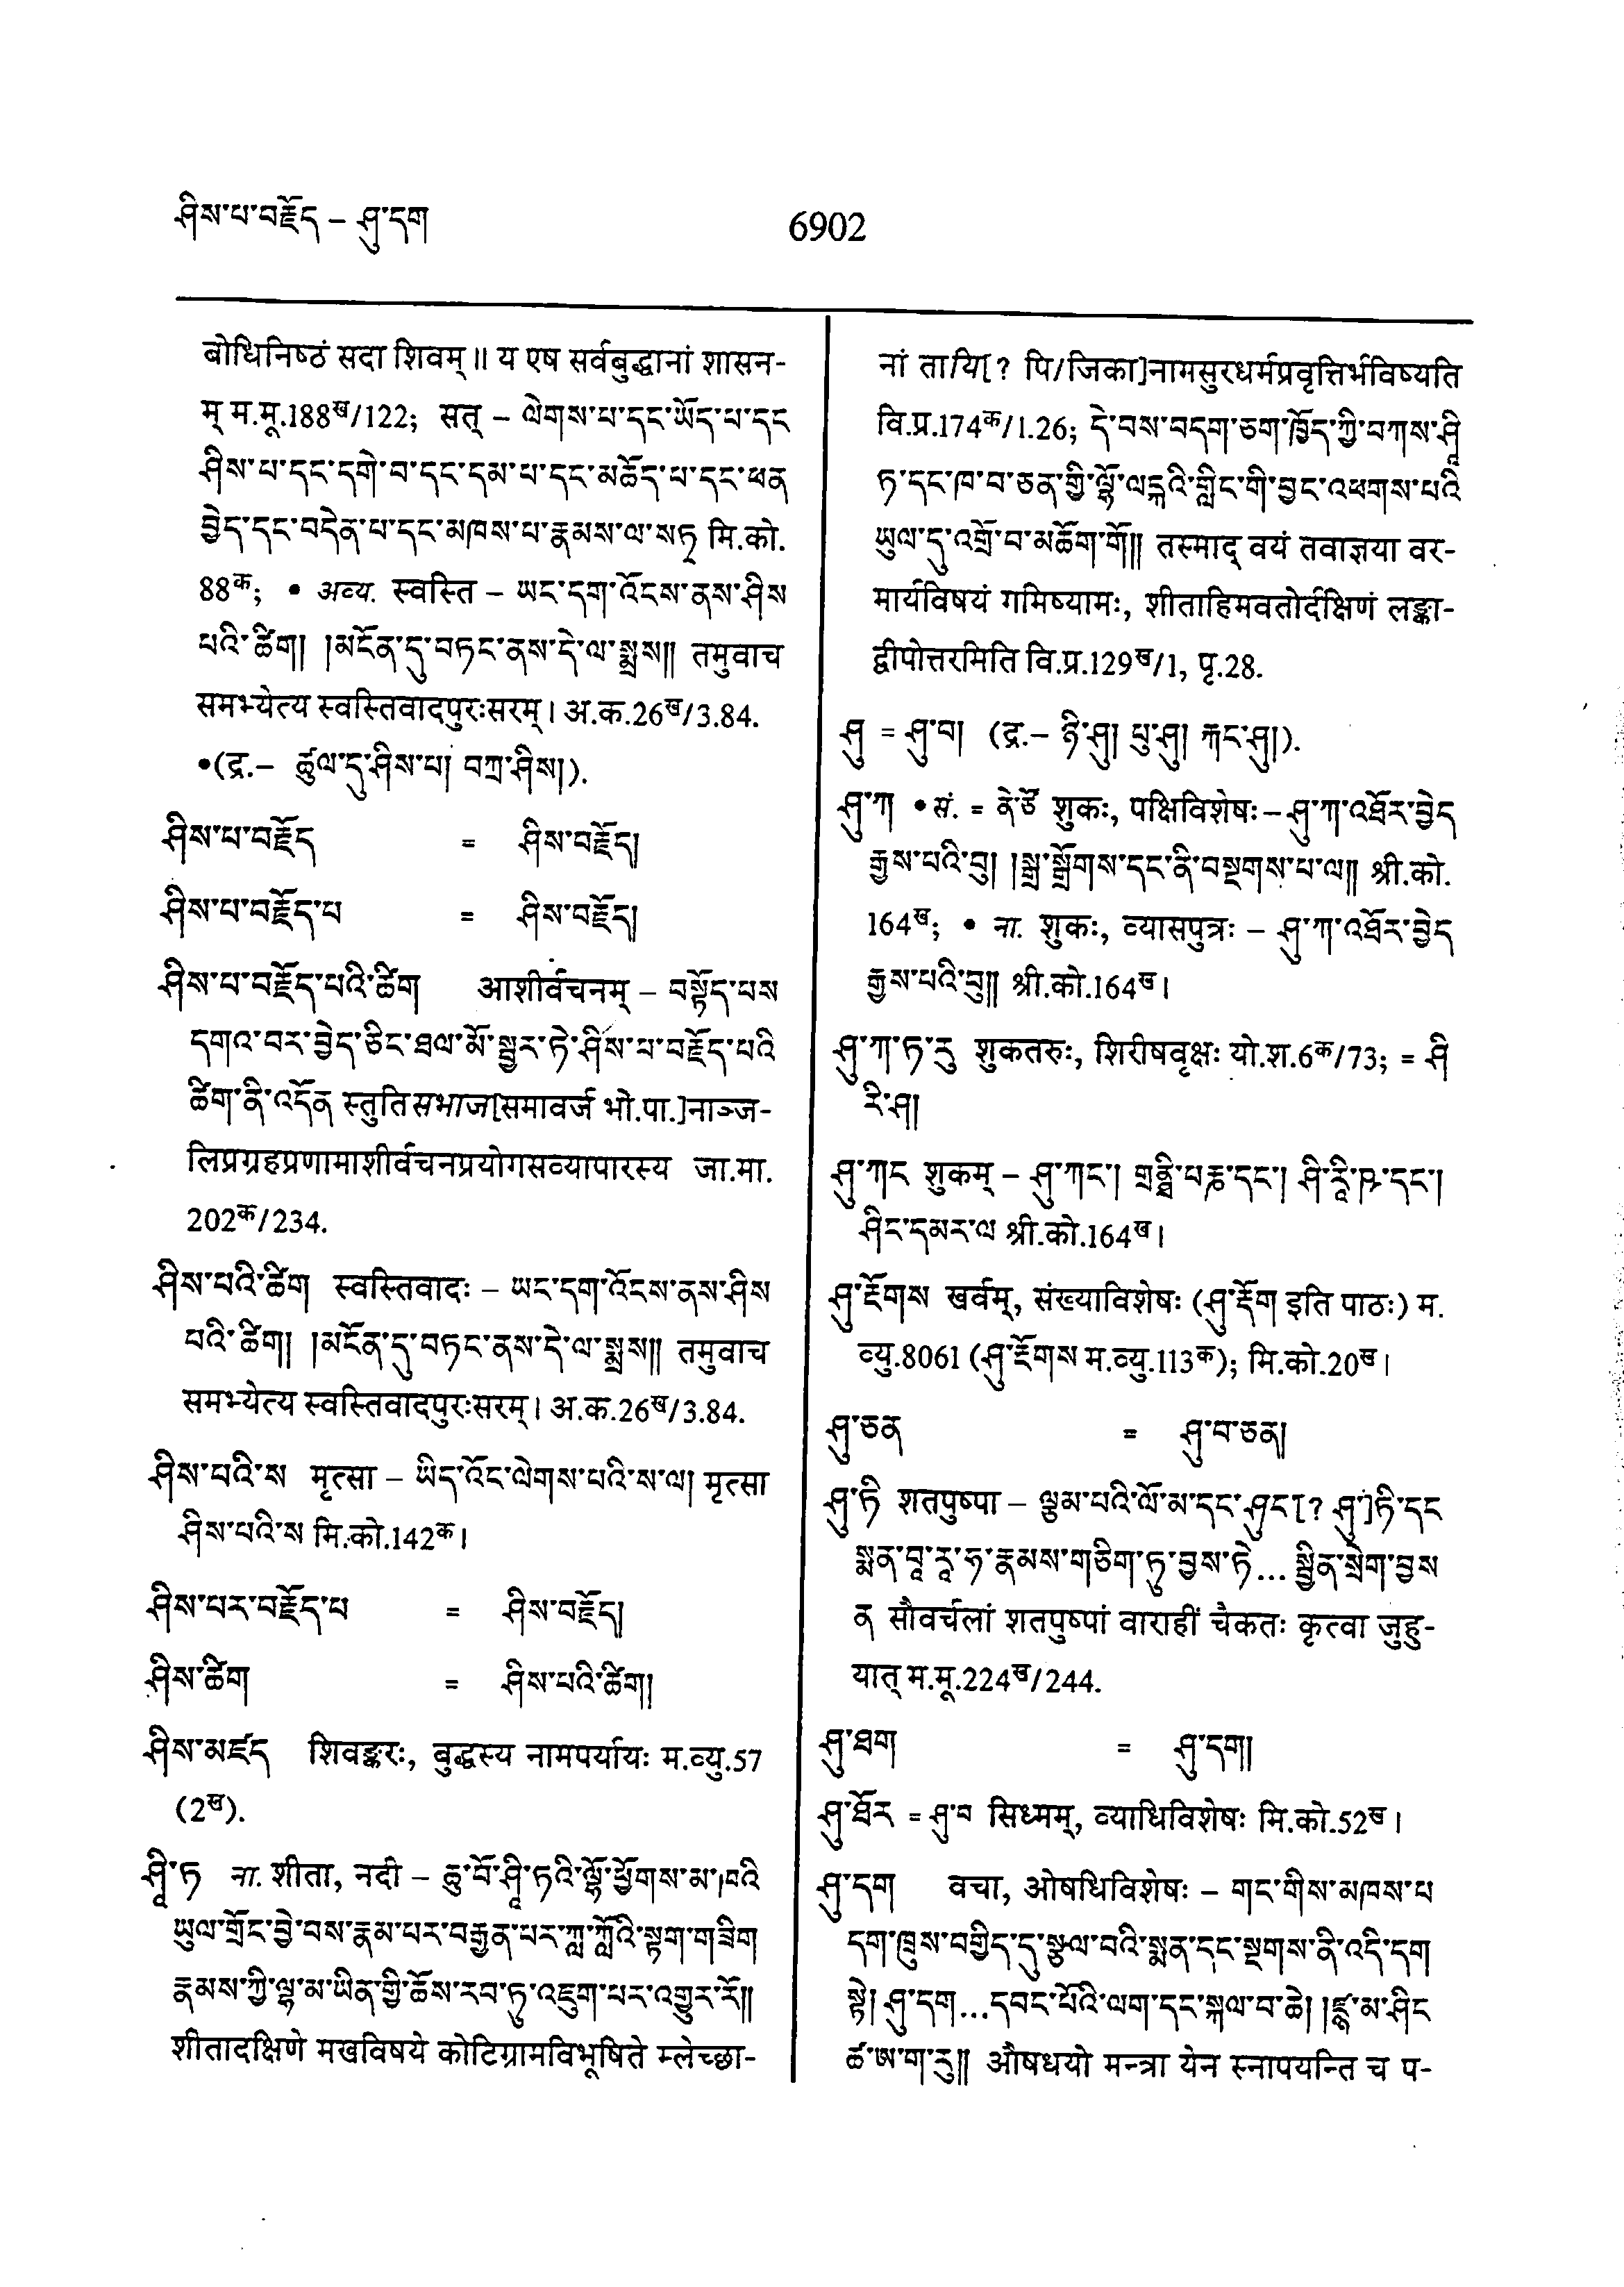 ཤིས་པ་བརྗོད – ཤུ་དག
6902
बोधिनिष्ठं सदा शिवम्॥ य एष सर्वबुद्धानां शासन-
म् म.मू.188ख/122; सत् – ལེགས་པ་དང་ཡོད་པ་དང
ཤིས་པ་དང་དགེ་བ་དང་དམ་པ་དང་མཆོད་པ་དང་ཕན
བྱེད་དང་བདེན་པ་དང་མཁས་པ་རྣམས་ལ་སཏྭ मि.को.
88क; • अव्य. स्वस्ति – ཡང་དག་འོངས་ནས་ཤིས
པའི་ཚིག། །མངོན་དུ་བཏང་ནས་དེ་ལ་སྨྲས།། तमुवाच
समभ्येत्य स्वस्तिवादपुरःसरम्। अ.क.26ख/3.84.
•(द्र.– ཚུལ་དུ་ཤིས་པ། བཀྲ་ཤིས།).
ཤིས་པ་བརྗོད = ཤིས་བརྗོད།
ཤིས་པ་བརྗོད་པ = ཤིས་བརྗོད།
ཤིས་པ་བརྗོད་པའི་ཚིག आशीर्वचनम् – བསྟོད་པས
དགའ་བར་བྱེད་ཅིང་ཐལ་མོ་སྦྱར་ཏེ་ཤིས་པ་བརྗོད་པའི
ཚིག་ནི་འདོན स्तुतिसभाज[समावर्ज भो.पा.]नाञ्ज-
लिप्रग्रहप्रणामाशीर्वचनप्रयोगसव्यापारस्य जा.मा.
202क/234.
ཤིས་པའི་ཚིག स्वस्तिवादः – ཡང་དག་འོངས་ནས་ཤིས
པའི་ཚིག། །མངོན་དུ་བཏང་ནས་དེ་ལ་སྨྲས།། तमुवाच
समभ्येत्य स्वस्तिवादपुरःसरम्। अ.क.26ख/3.84.
ཤིས་པའི་ས मृत्सा – ཡིད་འོང་ལེགས་པའི་ས་ལ། मृत्सा
ཤིས་པའི་ས मि.को.142क।
ཤིས་པར་བརྗོད་པ = ཤིས་བརྗོད།
ཤིས་ཚིག = ཤིས་པའི་ཚིག།
ཤིས་མཛད शिवङ्करः, बुद्धस्य नामपर्यायः म.व्यु.57
(2ख).
ཤཱི་ཏ ना. शीता, नदी – ཆུ་བོ་ཤཱི་ཏའི་ལྷོ་ཕྱོགས་མ་ཁའི
ཡུལ་གྲོང་བྱེ་བས་རྣམ་པར་བརྒྱན་པར་ཀླ་ཀློའི་སྟག་གཟིག
རྣམས་ཀྱི་ལྷ་མ་ཡིན་གྱི་ཆོས་རབ་ཏུ་འཇུག་པར་འགྱུར་རོ།།
शीतादक्षिणे मखविषये कोटिग्रामविभूषिते म्लेच्छा-
नां तायि[? पि/जिका]नामसुरधर्मप्रवृत्तिर्भविष्यति
वि.प्र.174क/1.26; དེ་བས་བདག་ཅག་ཁྱོད་ཀྱི་བཀས་ཤཱི
ཏ་དང་ཁ་བ་ཅན་གྱི་ལྷོ་ལངྐའི་གླིང་གི་བྱང་འཕགས་པའི
ཡུལ་དུ་འགྲོ་བ་མཆོག་གོ།། तस्माद् वयं तवाज्ञया वर-
मार्यविषयं गमिष्यामः, शीताहिमवतोर्दक्षिणं लङ्का-
द्वीपोत्तरमिति वि.प्र.129ख/1, पृ.28.
ཤུ = ཤུ་བ། (द्र.– ཉི་ཤུ། པུ་ཤུ། རྐང་ཤུ།).
ཤུ་ཀ • सं. = ནེ་ཙོ शुकः, पक्षिविशेषः – ཤུ་ཀ་འཐོར་བྱེད
རྒྱས་པའི་བུ། །སྒྲ་སྒྲོགས་དང་ནི་བསྔགས་པ་ལ།། श्री.को.
164ख; • ना. शुकः, व्यासपुत्रः – ཤུ་ཀ་འཐོར་བྱེད
རྒྱས་པའི་བུ།། श्री.को.164ख।
ཤུ་ཀ་ཏ་རུ शुकतरुः, शिरीषवृक्षः यो.श.6क/73; = ཤི
རི་ཤ།
ཤུ་ཀང शुकम् – ཤུ་ཀང་། གྲནྠི་པརྞ་དང་། ཤི་རཱི་ཥ་དང་།
ཤིང་དམར་ལ श्री.को.164ख।
ཤུ་རྡོགས खर्वम्, संख्याविशेषः (ཤུ་རྡོག इति पाठः) म.
व्यु.8061 (ཤུ་རྡོགས म.व्यु.113क); मि.को.20ख।
ཤུ་ཅན = ཤུ་བ་ཅན།
ཤུ་ཏི शतपुष्पा – ལྕམ་པའི་ལོ་མ་དང་ཤུང[? ཤུ་]ཏི་དང
སྨན་བཱ་རཱ་ཧ་རྣམས་གཅིག་ཏུ་བྱས་ཏེ... སྦྱིན་སྲེག་བྱས
ན सौवर्चलां शतपुष्पां वाराहीं चैकतः कृत्वा जुहु-
यात् म.मू.224ख/244.
ཤུ་ཐག = ཤུ་དག།
ཤུ་ཐོར = ཤུ་བ सिध्मम्, व्याधिविशेषः मि.को.52ख।
ཤུ་དག वचा, ओषधिविशेषः – གང་གིས་མཁས་པ
དག་ཁྲུས་བགྱིད་དུ་སྩལ་བའི་སྨན་དང་སྔགས་ནི་འདི་དག
སྟེ། ཤུ་དག...དབང་པོའི་ལག་དང་སྐལ་བ་ཆེ། །ཛྙ་མ་ཤིང
ཚ་ཨ་ག་རུ།། औषधयो मन्त्रा येन स्नापयन्ति च प-